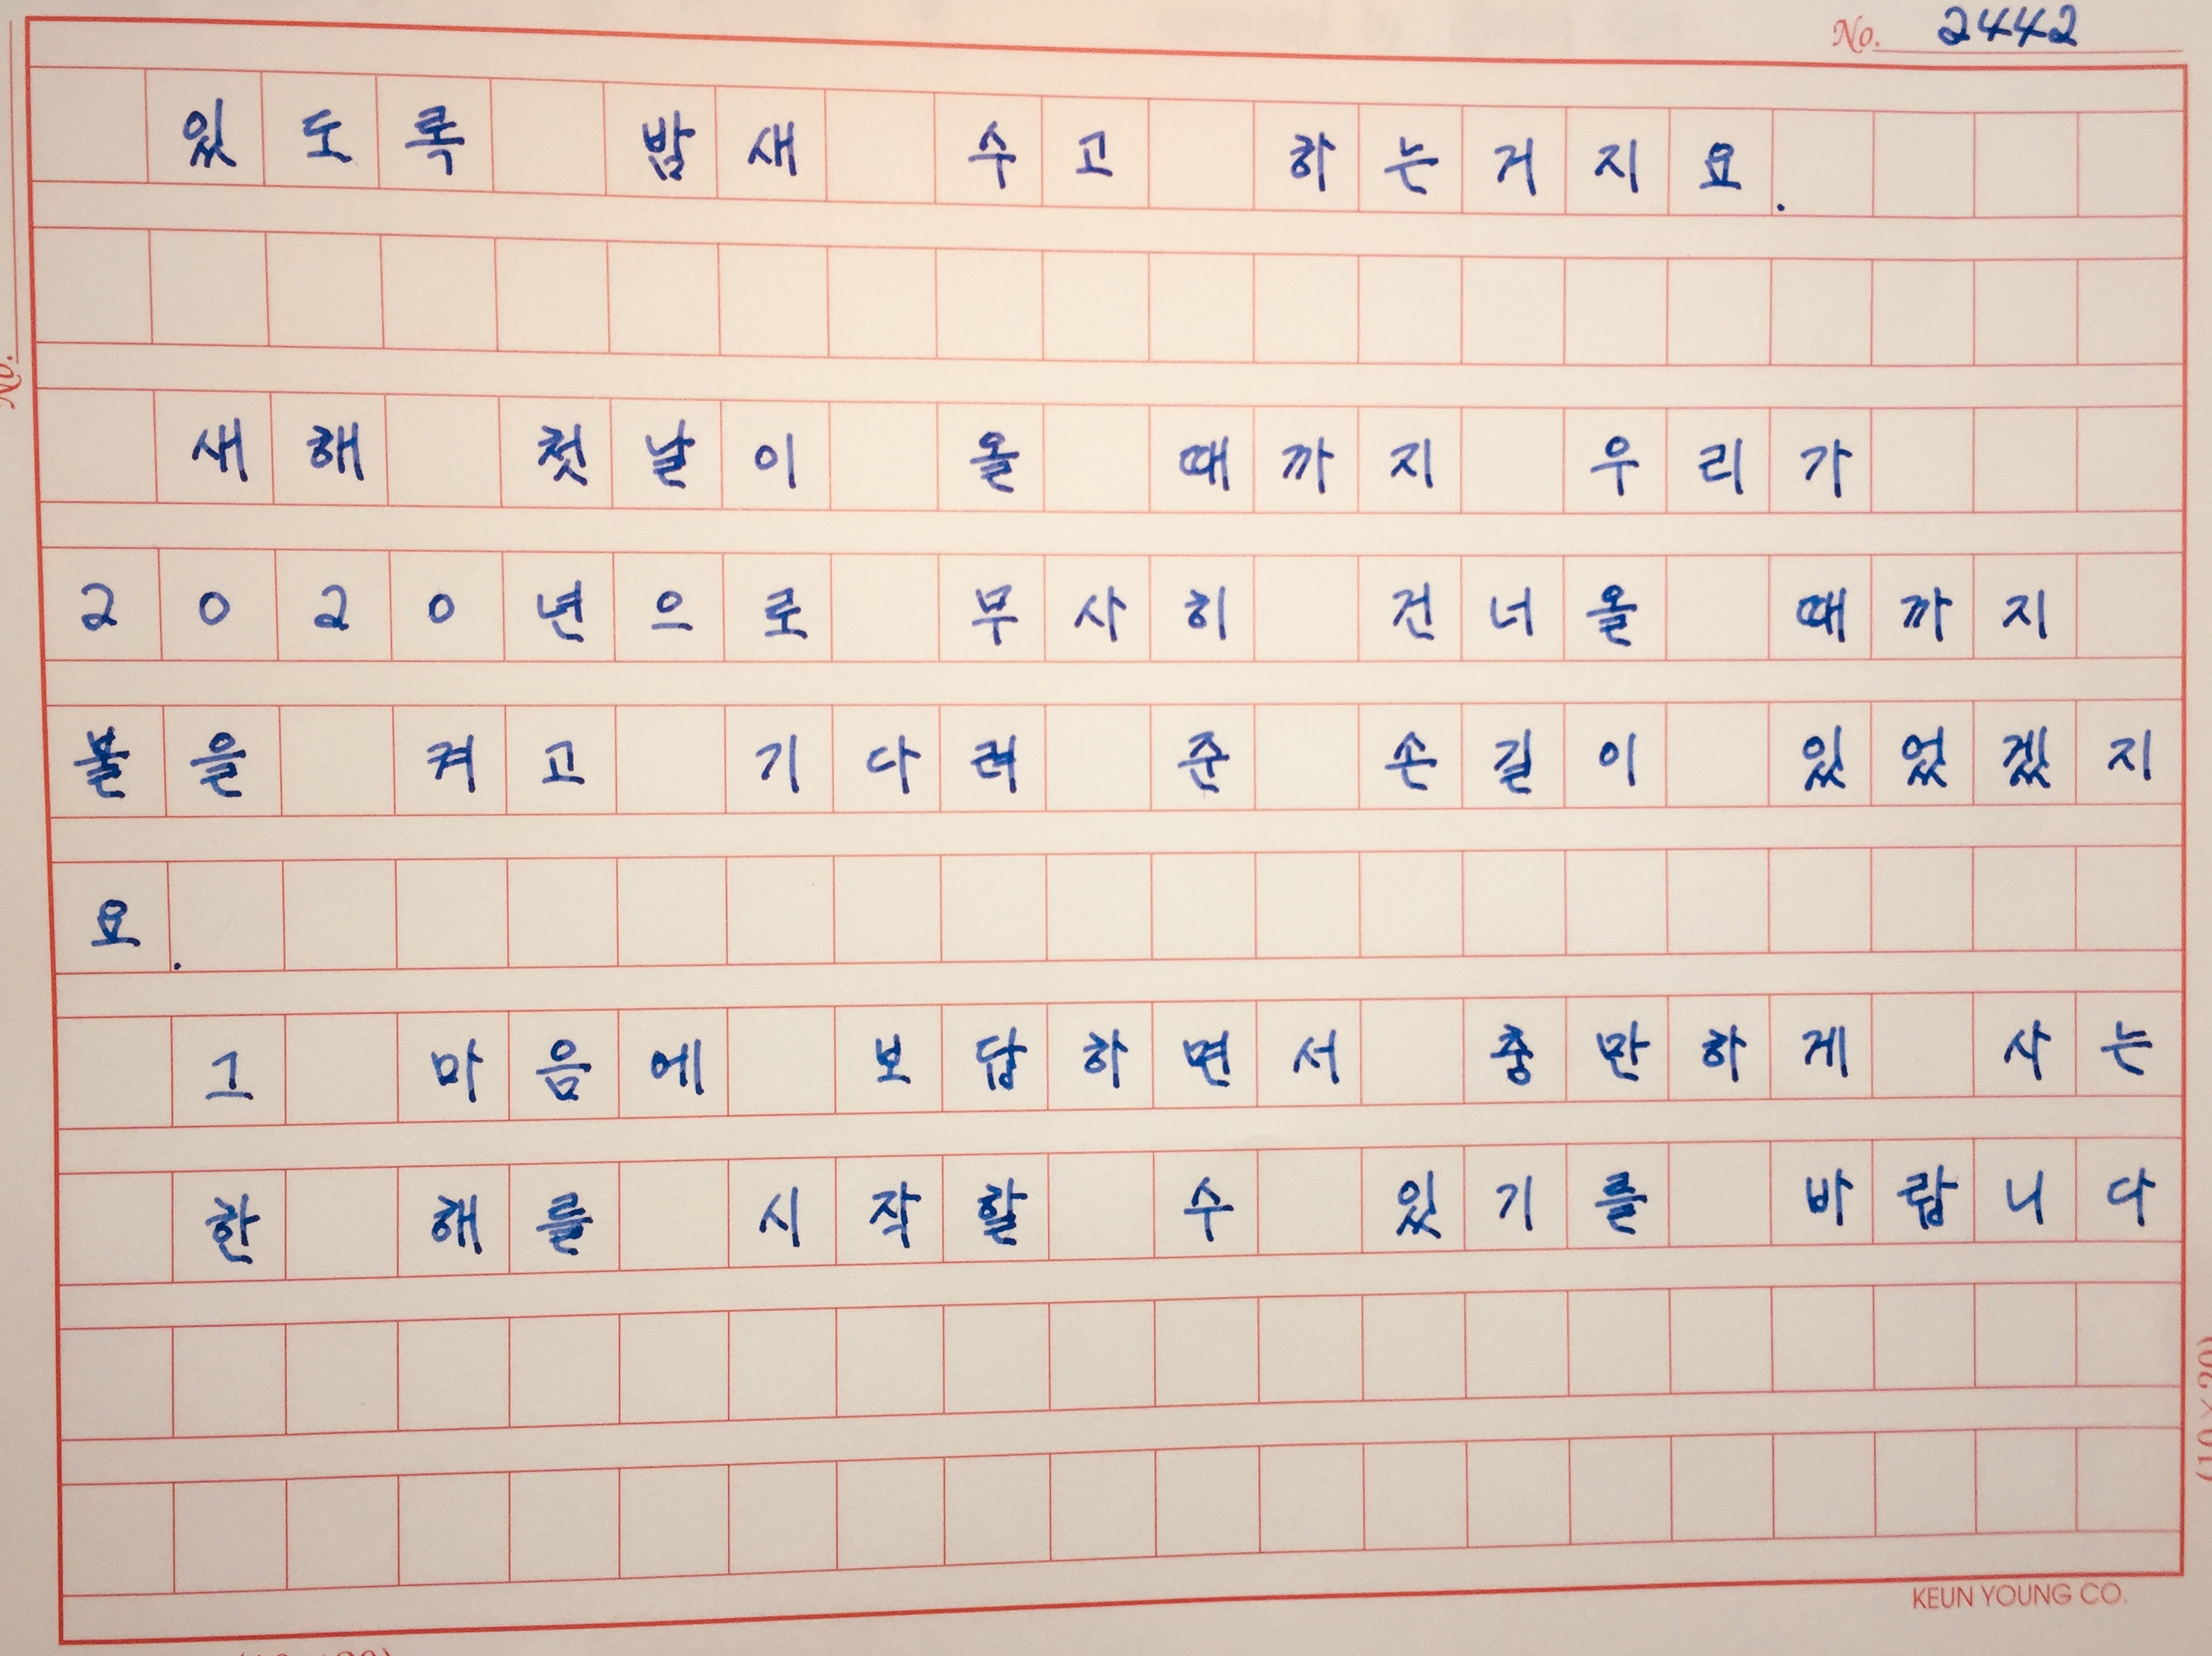 No. 2442
있도록 밤새 수고 하는거지요.
새해 첫날이 올 때까지 우리가
2020년으로 무사히 건너올 때까지
불을 켜고 기다려 준 손길이 있었겠지
요.
그 마음에 보답하면서 충만하게 사는
한 해를 시작할 수 있기를 바랍니다
KEUN YOUNG CO.
No.
(10×20)